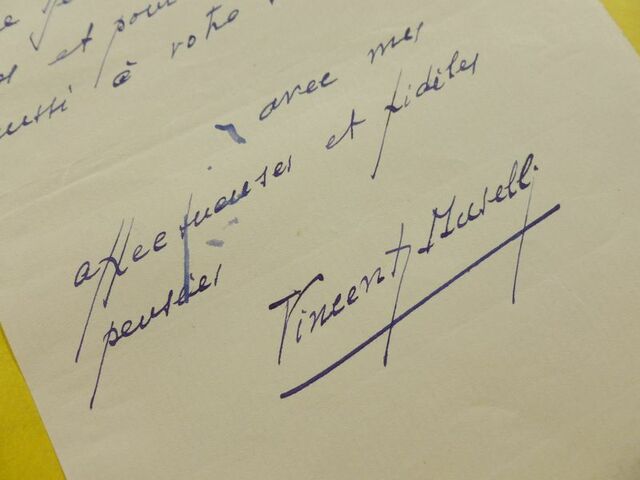 et pour
à votre
avec mes
affectueuses et fidèles
pensées
Vincent Muselli